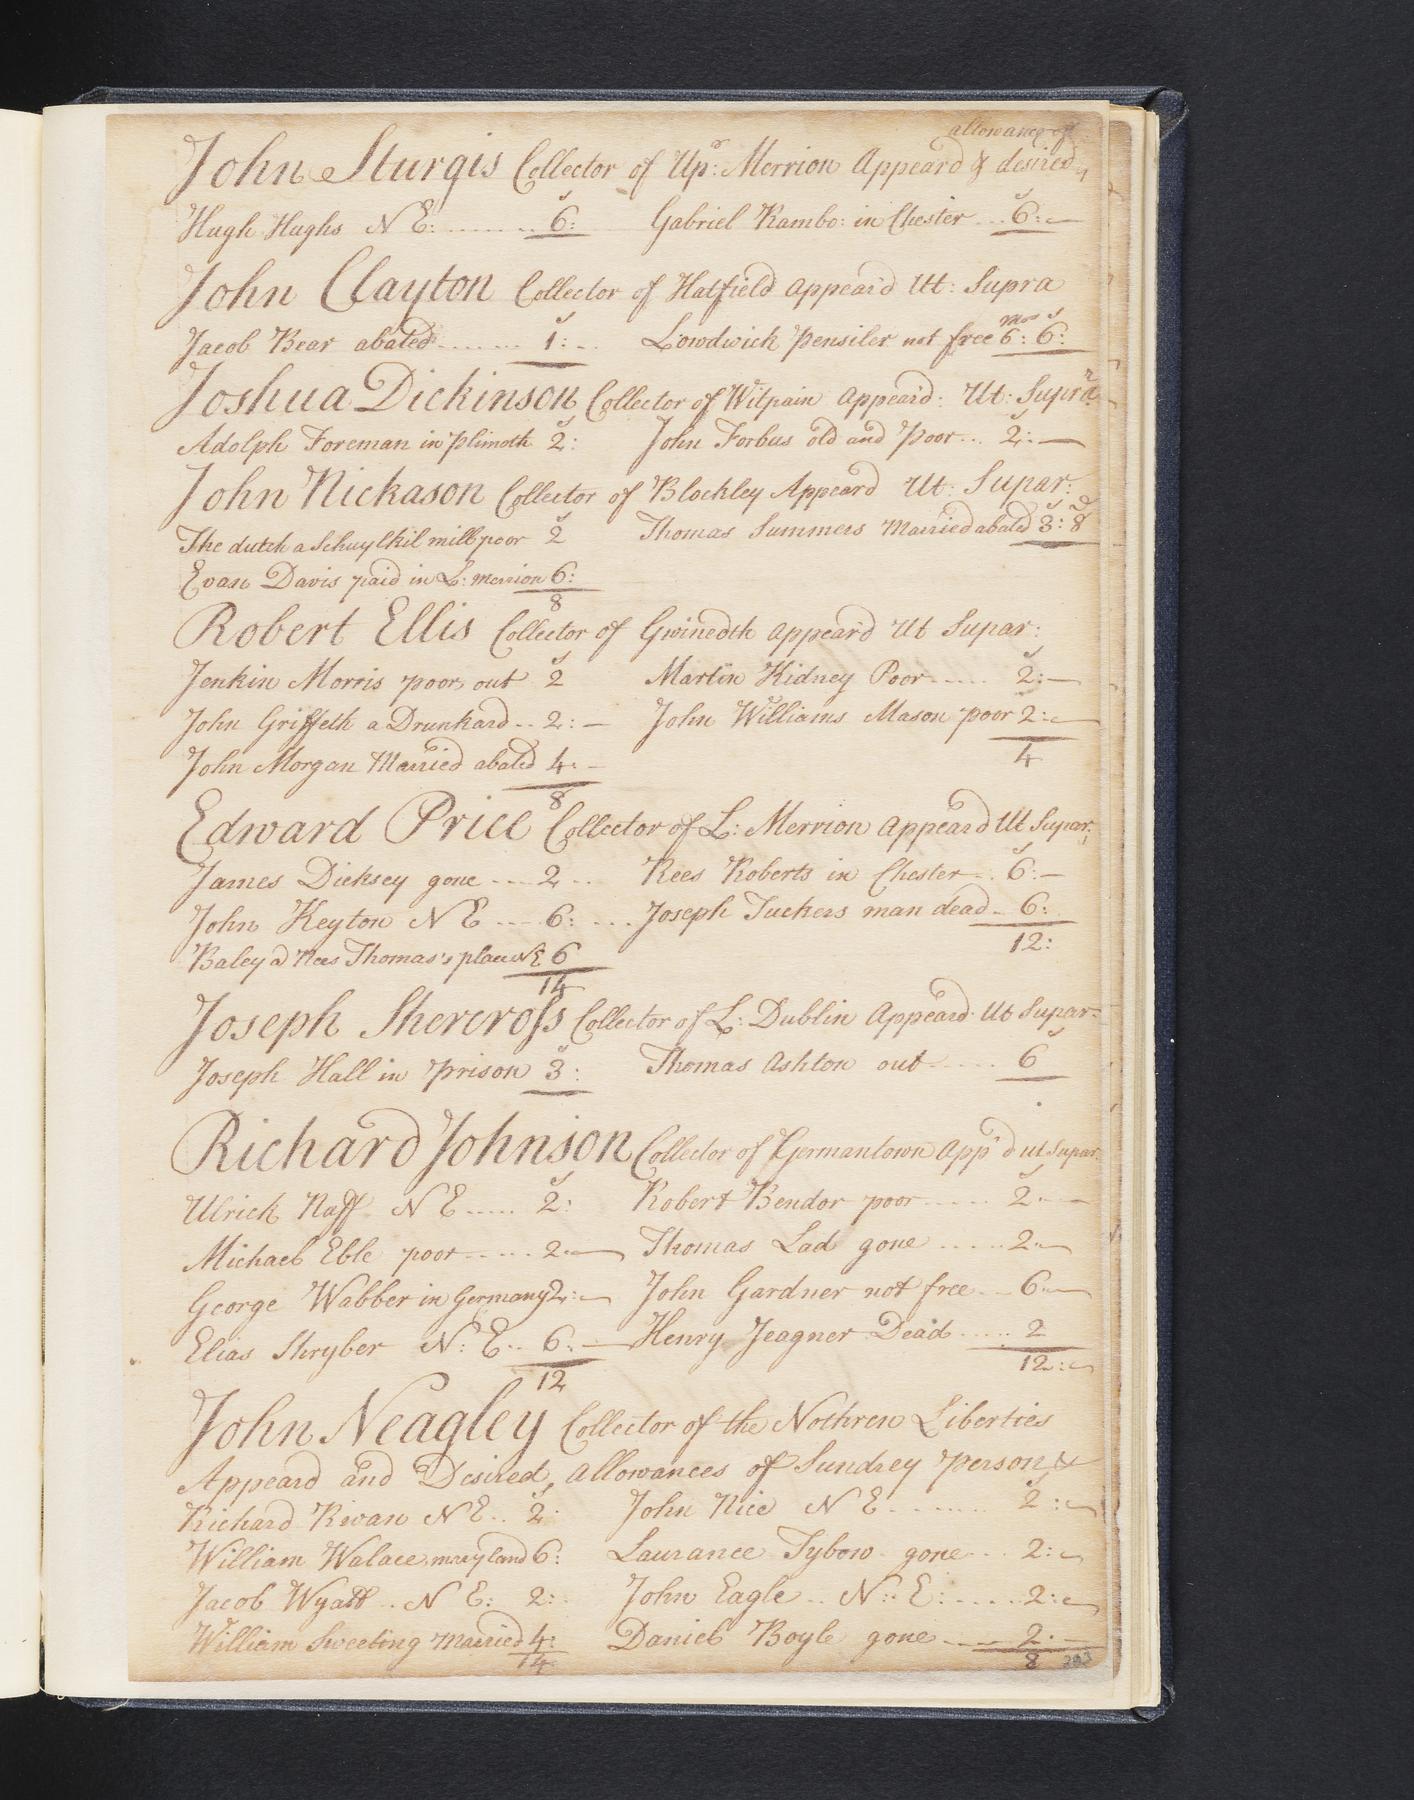 allowance of
John Sturgis Collector of Upr: Merrion Appeard & desired
Hugh Hughs N E: ........ 6: Gabriel Rambo: in Chester ... 6:
John Clayton Collector of Hatfield appeard Ut: Supra
Jacob Bear abated ....... 1: Lowdwick Pensiler not free 6 mos: 6:
Joshua Dickinson Collector of Witpain appeard: Ut: Supra
Adolph Foreman in Plimoth 2: John Forbus old and Poor ... 2:
John Nickason Collector of Blockley Appeard Ut: Supar:
The dutch a Schuylkil mill poor 2 Thomas Summers Married abated 3: 8
Evan Davis paid in L: merrion 6:
8
Robert Ellis Collector of Gwinedth appeard Ut Supar:
Jenkin Morris poor out 2 Martin Kidney Poor ..... 2:
John Griffeth a Drunkard .. 2: John Williams Mason poor 2:
John Morgan Married abated 4:
4
8
Edward Price Collector of L: Merrion appeard Ut Supar:
James Dicksey gone ... 2 .. Rees Roberts in Chester .. 6:
John Keyton N E ... 6: ... Joseph Tuckers man dead .. 6:
12:
Baley @ Rees Thomas's place N E 6
14
Joseph Shercross Collector of L: Dublin Appeard Ut Supar:
Joseph Hall in Prison 3: Thomas Ashton out ...... 6
Richard Johnson Collector of Germantown App'd ut Supar:
Ulrick Naff N E ..... 2: Robert Bendor poor ..... 2:
Michael Eble poor ..... 2: Thomas Lad gone ..... 2:
George Wabber in Germany 2: John Gardner not free .. 6:
Elias Shryber N: E .. 6: Henry Jeagner Dead ..... 2
12 12:
John Neagley Collector of the Nothren Liberties
Appeard and Desired, allowances of Sundrey Person
Richard Rivan N E .. 2: John Rice N E ....... 2:
William Walace maryland 6: Laurance Tybow gone ... 2:
Jacob Wyatt .. N E: 2: John Eagle .. N: E: ..... 2:
William Sweeting Married 4: Daniel Boyle gone ..... 2:
14 8
203